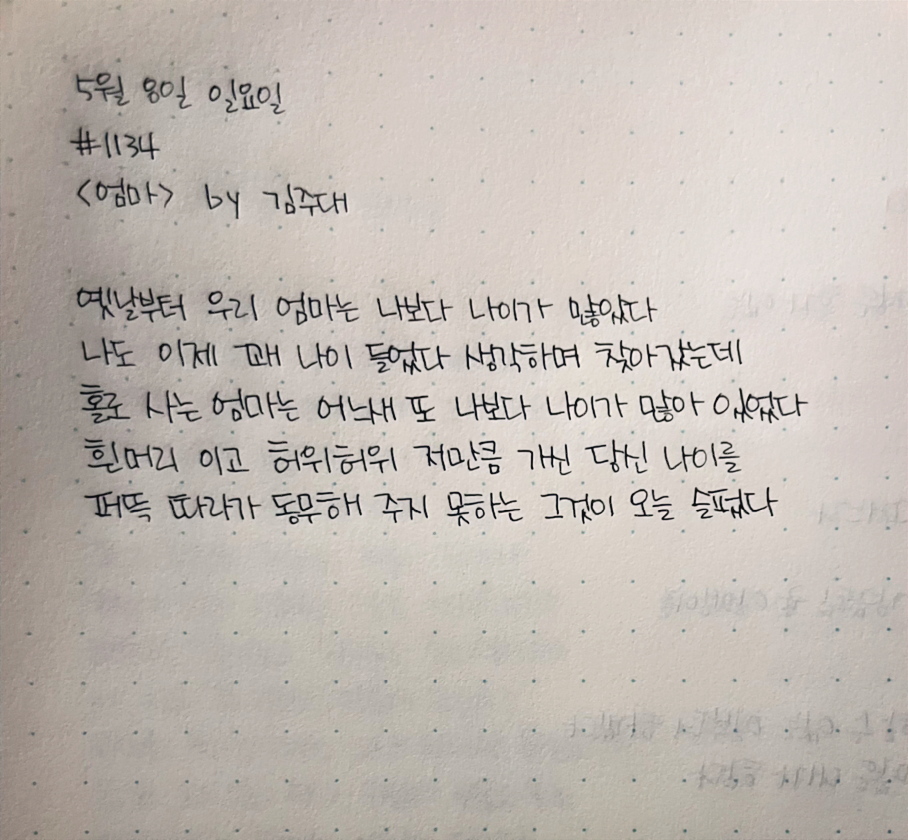 5월 8일 일요일
#1134
<엄마> by 김주대
옛날부터 우리 엄마는 나보다 나이가 많았다
나도 이제 꽤 나이 들었다 생각하며 찾아갔는데
홀로 사는 엄마는 어느새 또 나보다 나이가 많아 있었다
흰머리 이고 허위허위 저만큼 가신 당신 나이를
퍼뜩 따라가 동무해 주지 못하는 그것이 오늘 슬펐다